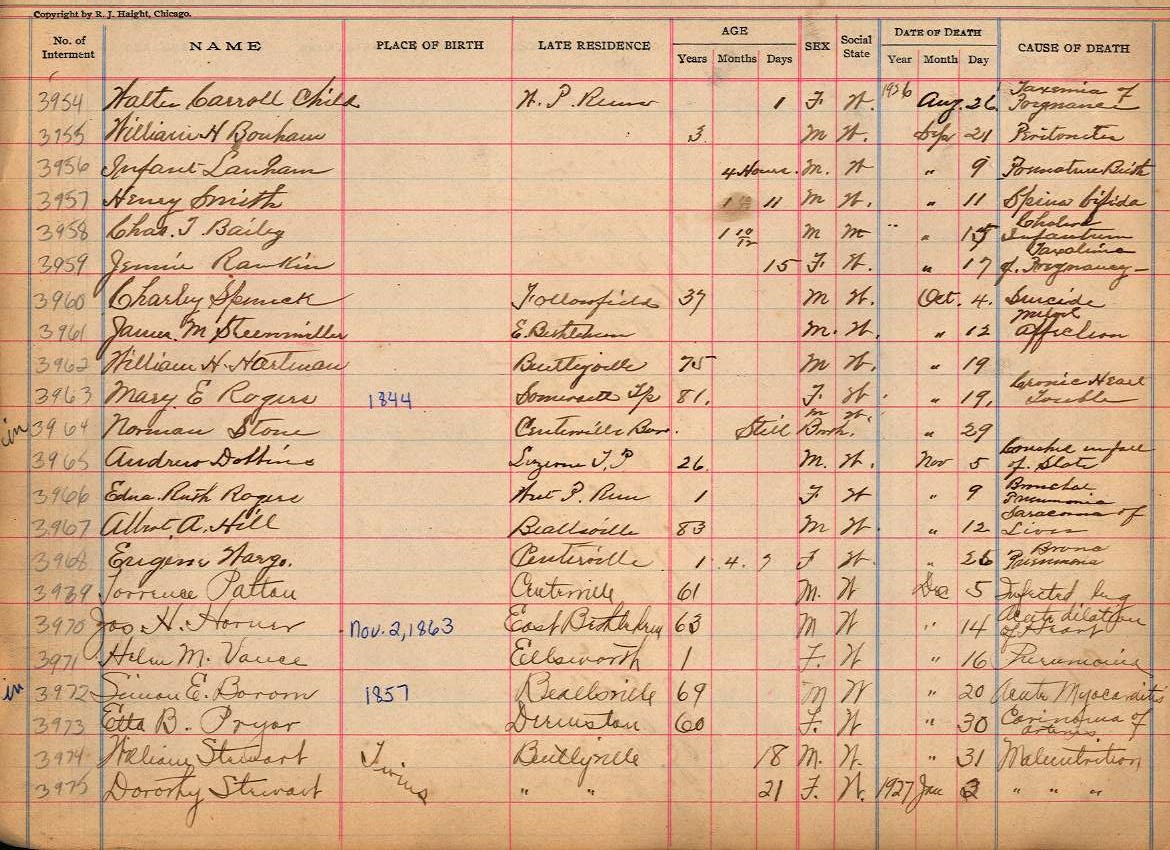 Copyright by R. J. Haight, Chicago.
No. of Interment NAME PLACE OF BIRTH LATE RESIDENCE AGE SEX Social State DATE OF DEATH CAUSE OF DEATH
Years Months Days Year Month Day
3954 Walter Carroll Child W. P. 1 F. W. 1926 Aug. 26 of
3955 William H Bonham 3. M W. Sep 21
3956 Infant Lanham 4 Hours. M. W " 9 Birth
3957 Henry Smith 11 M W. " 11 Spina bifida
3958 Chas. T. Bailey 1 10/12 M M " " 15 Cholera Infantum
3959 Jennie Rankin 15 F. W. " 17 of
3960 Charley 37 M W. Oct. 4. Suicide
3961 James M E. M. W. " 12 Affection
3962 William H. Hartman 75 M W. " 19
3963 Mary E Rogers 1844 Somerset Tp 81. F W " 19. Cronic Heart Trouble
in 3964 Norman Stone Centerville Still Birth. M W. " 29
3965 Andrew Dobbins Luzerne T. P 26. M. W. Nov 5 of Slate
3966 Edna Ruth Rogers P. Run 1 F. W " 9 Bronchal Pneumonia
3967 Albert A. Hill Beallsville 83 M W. " 12 of Liver
3968 Eugene Hargo. Centerville 1 4. F W. " 26 Pneumonia
3939 Patton Centerville 61 M. W Dec 5 Infected leg
3970 Jos. H. Horner Nov. 2, 1863 East 63 M W " 14 Acute dilation of Heart
3971 Helen M. Vance Ellsworth 1 F. W " 16 Pneumonia
in 3972 Simon E. 1857 Beallsville 69 M W " 20 Acute Myocarditis
3973 Etta B. Pryor 60 F. W " 30 of
3974 William Stewart Twins 18 M. W. " 31 Malnutrition
3975 Dorothy Stewart " " 21 F. W. 1927 Jan " " "